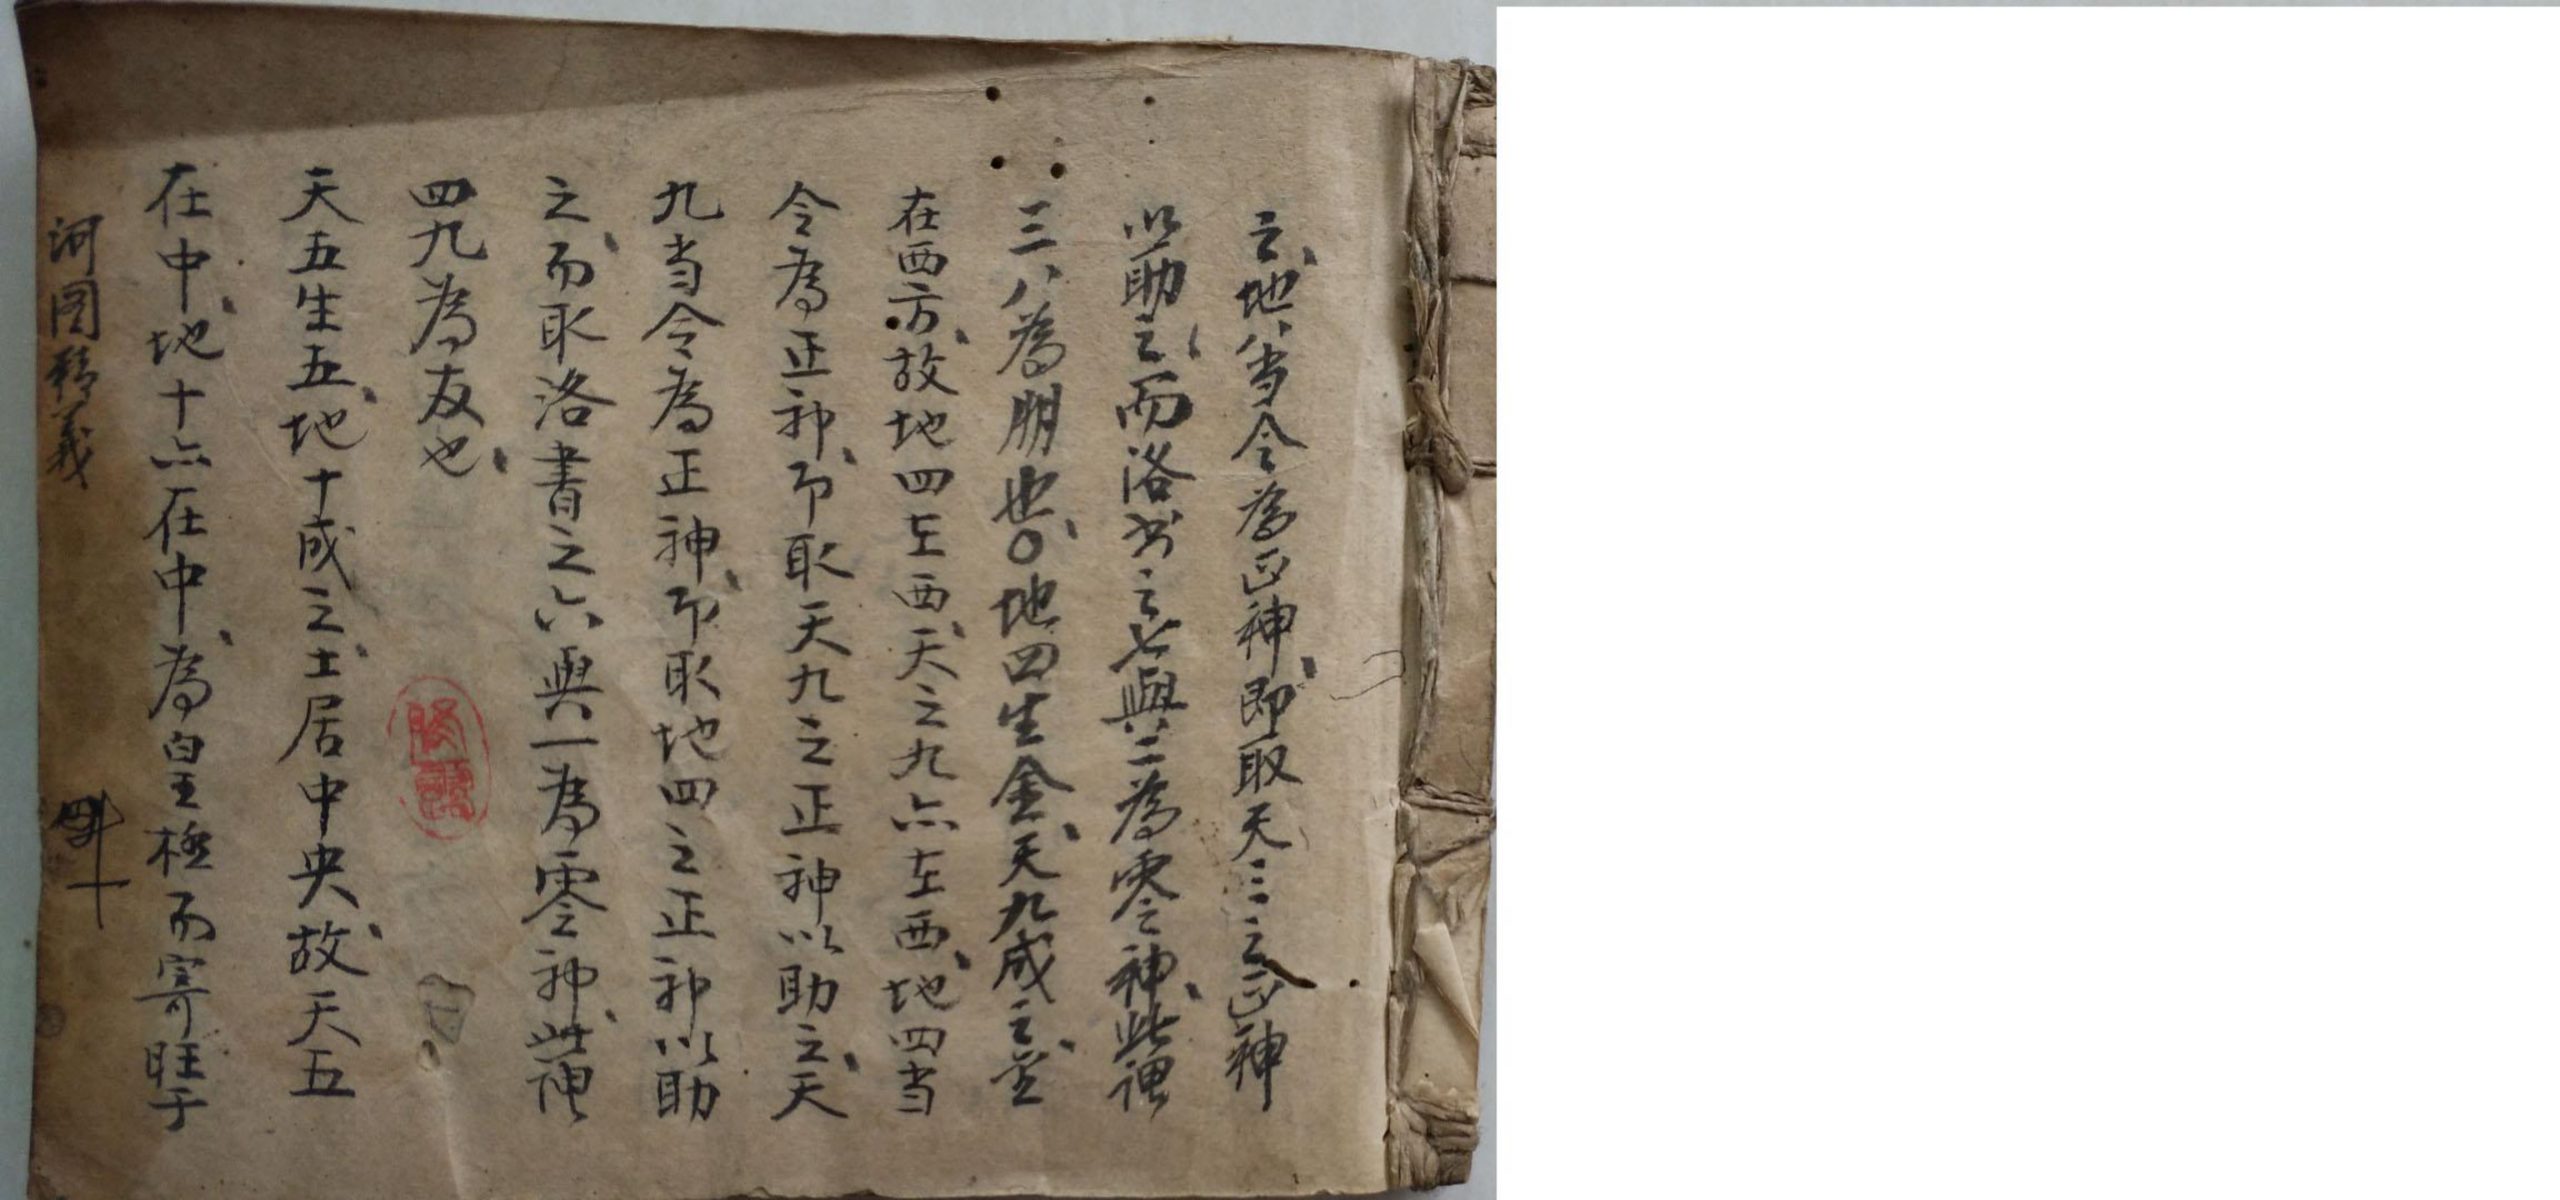 之地八当令為正神即取天三之正神
以助之而洛书之七與二為零神此謂
三八為朋也〇地四生金天九成之金
在西方故地四在西天之九亦在西地四当
令為正神即取天九之正神以助之天
九当令為正神即取地四之正神以助
之而取洛書之六與一為零神此謂
四九為友也
天五生五地十成之土居中央故天五
在中地十亦在中為皇極而寄旺于
河图精義